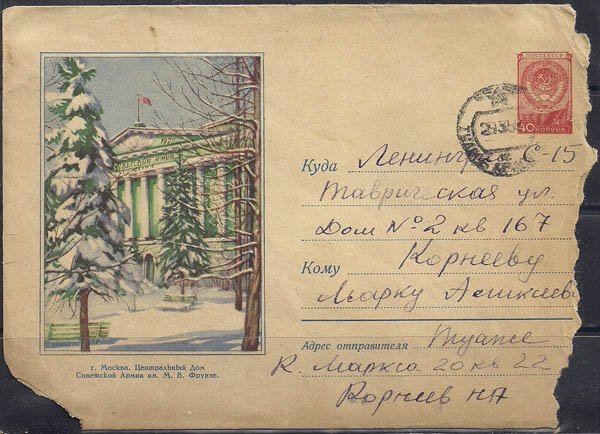 ПОЧТА СССР
40 КОПЕЕК
Куда Ленинград С-15
Таврическая ул.
Дом № 2 кв 167
Кому Корнееву
Льву
Адрес отправителя Туапсе
К. Маркса 20 кв 22
Корнеев НА
г. Москва. Центральный Дом
Советской Армии им. М. В. Фрунзе.